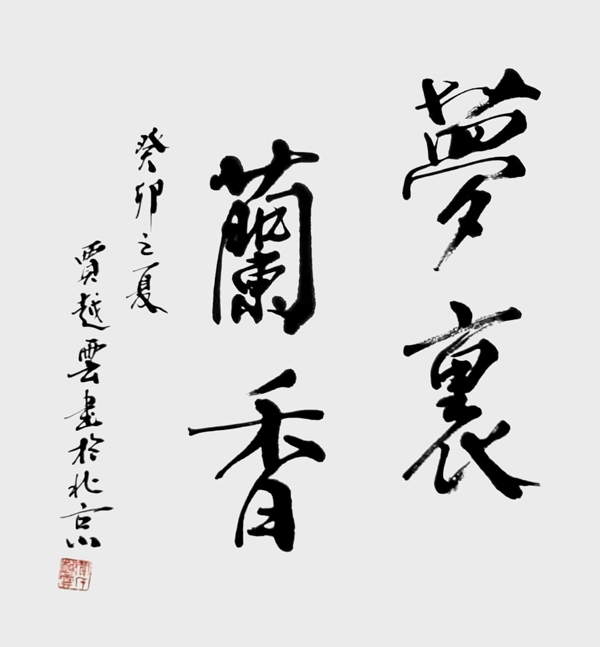 夢裏
蘭香
癸卯之夏
賈越雲書於北京